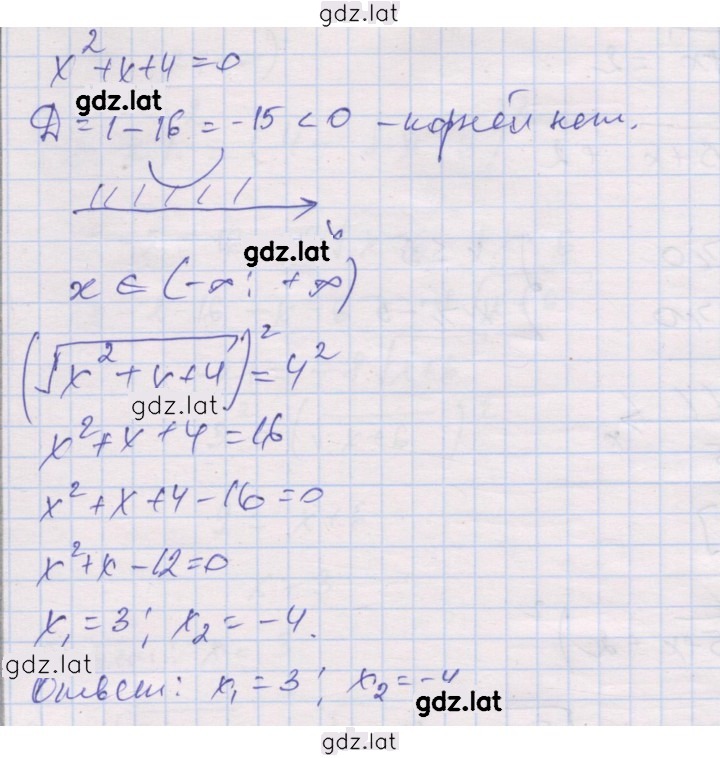 gdz.lat
x² + x + 4 = 0
gdz.lat
D = 1 - 16 = -15 < 0 - корней нет.
gdz.lat
x ∈ (-∞; +∞)
(√x² + x + 4)² = 4²
gdz.lat
x² + x + 4 = 16
x² + x + 4 - 16 = 0
x² + x - 12 = 0
x₁ = 3; x₂ = -4.
gdz.lat
Ответ: x₁ = 3; x₂ = -4
gdz.lat
gdz.lat